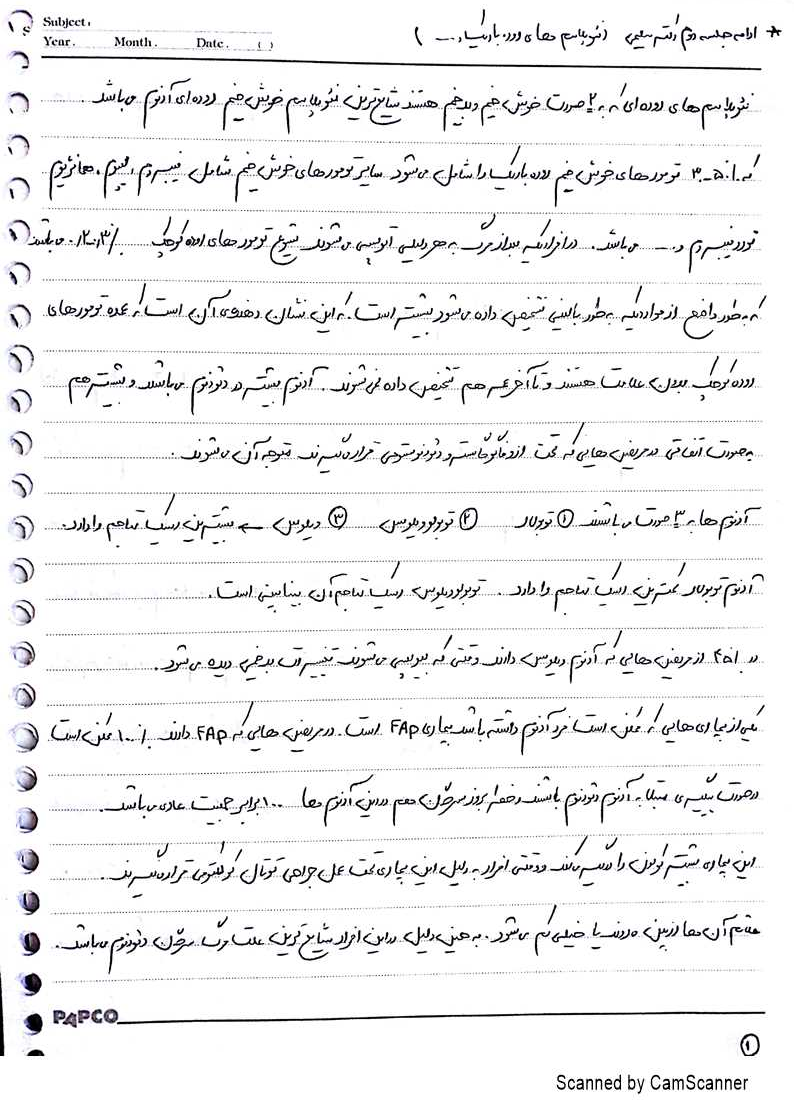 Subject:
Year. Month. Date. ( )
* ادامه جلسه دوم دکتر سلیمی (نئوپلاسم های روده باریک و ... )
نئوپلاسم های روده ای که به ۲ صورت خوش خیم و بدخیم هستند شایع ترین نئوپلاسم خوش خیم روده ای آدنوم می باشد.
که ۵۰٪ - ۳۰ تومورهای خوش خیم روده باریک را شامل می شود سایر تومورهای خوش خیم شامل فیبروم، لیپوم، همانژیوم
نوروفیبروم و ... می باشد. در افرادیکه بعد از مرگ به هر دلیلی اتوپسی می شوند شیوع تومورهای روده کوچک ۰/۲-۰/۳٪ می باشد
که به طور واضح از مواردیکه به طور بالینی تشخیص داده می شود بیشتر است. که این نشان دهنده ی آن است که عمده تومورهای
روده کوچک بدون علامت هستند و تا آخر عمر هم تشخیص داده نمی شوند. آدنوم بیشتر در دئودنوم می باشد و بیشتر هم
به صورت اتفاقی در مریض هایی که تحت ازوفاگوگاسترودئودنوسکوپی قرار میگیرند متوجه آن می شوند.
آدنوم ها به ۳ صورت می باشند ① توبولار ② توبولوویلوس ③ ویلوس ← بیشترین ریسک تهاجم را دارد.
آدنوم توبولار کمترین ریسک تهاجم را دارد. توبولوویلوس ریسک تهاجم آن بینابینی است.
در ۴۵٪ از مریض هایی که آدنوم ویلوس دارند وقتی که بیوپسی می شوند تغییرات بدخیمی دیده می شود.
یکی از بیماری هایی که ممکن است فرد آدنوم داشته باشد بیماری FAP است. در مریض هایی که FAP دارند ۱۰۰٪ ممکن است
در صورت پیگیری مبتلا به آدنوم دئودنوم باشند و خطر بروز سرطان هم در این آدنوم ها ۱۰۰ برابر جمعیت عادی می باشد.
این بیماری بیشتر کولون را درگیر میکند و وقتی افراد به دلیل این بیماری تحت عمل جراحی توتال کولکتومی قرار میگیرند.
علائم آن ها از بین می رود یا خیلی کم می شود. به همین دلیل در این افراد شایع ترین علت مرگ سرطان دئودنوم می باشد.
PAPCO
①
Scanned by CamScanner